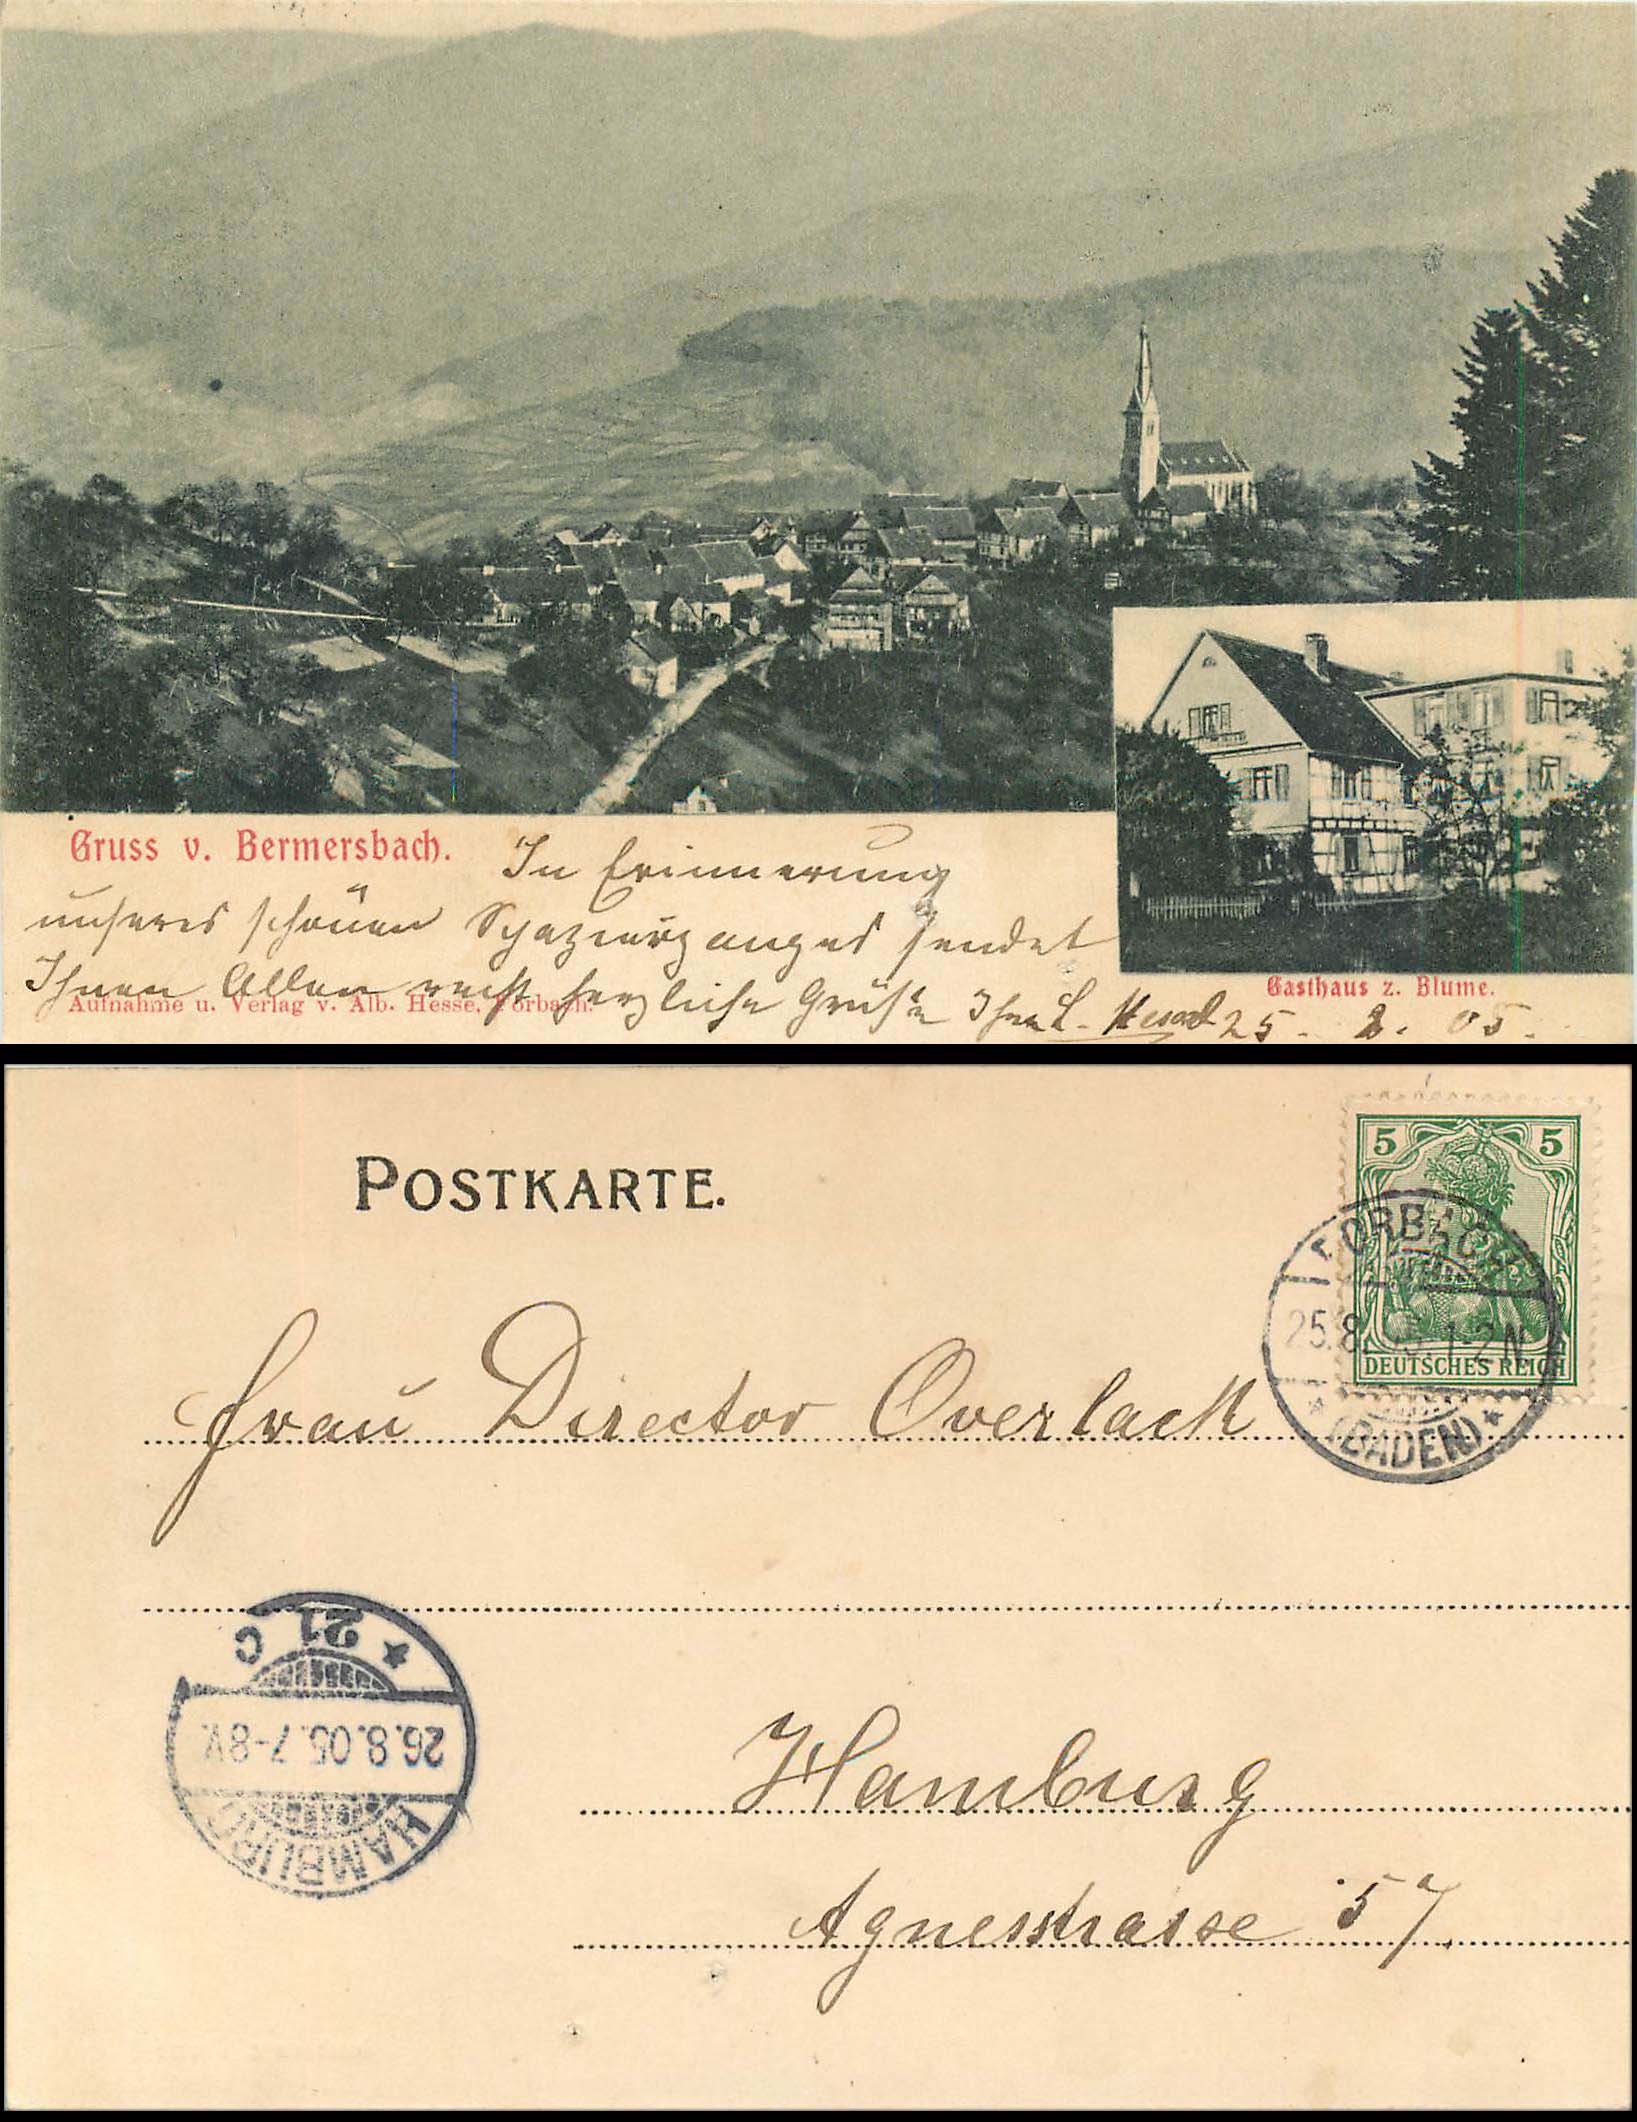 Gruss v. Bermersbach.
In Erinnerung
unseres schönen Spazierganges sendet
Ihnen Allen recht herzliche Grüße Ihre L.
25. 8. 05.
Aufnahme u. Verlag v. Alb. Hesse, Forbach.
Gasthaus z. Blume.
POSTKARTE.
5 5
DEUTSCHES REICH
FORBACH
25.8. 05. 1-2 N
* (BADEN) *
Frau Director Overlack
HAMBURG
26.8.05. 7-8 V.
* 21 C
Hamburg
Agnesstrasse 57.